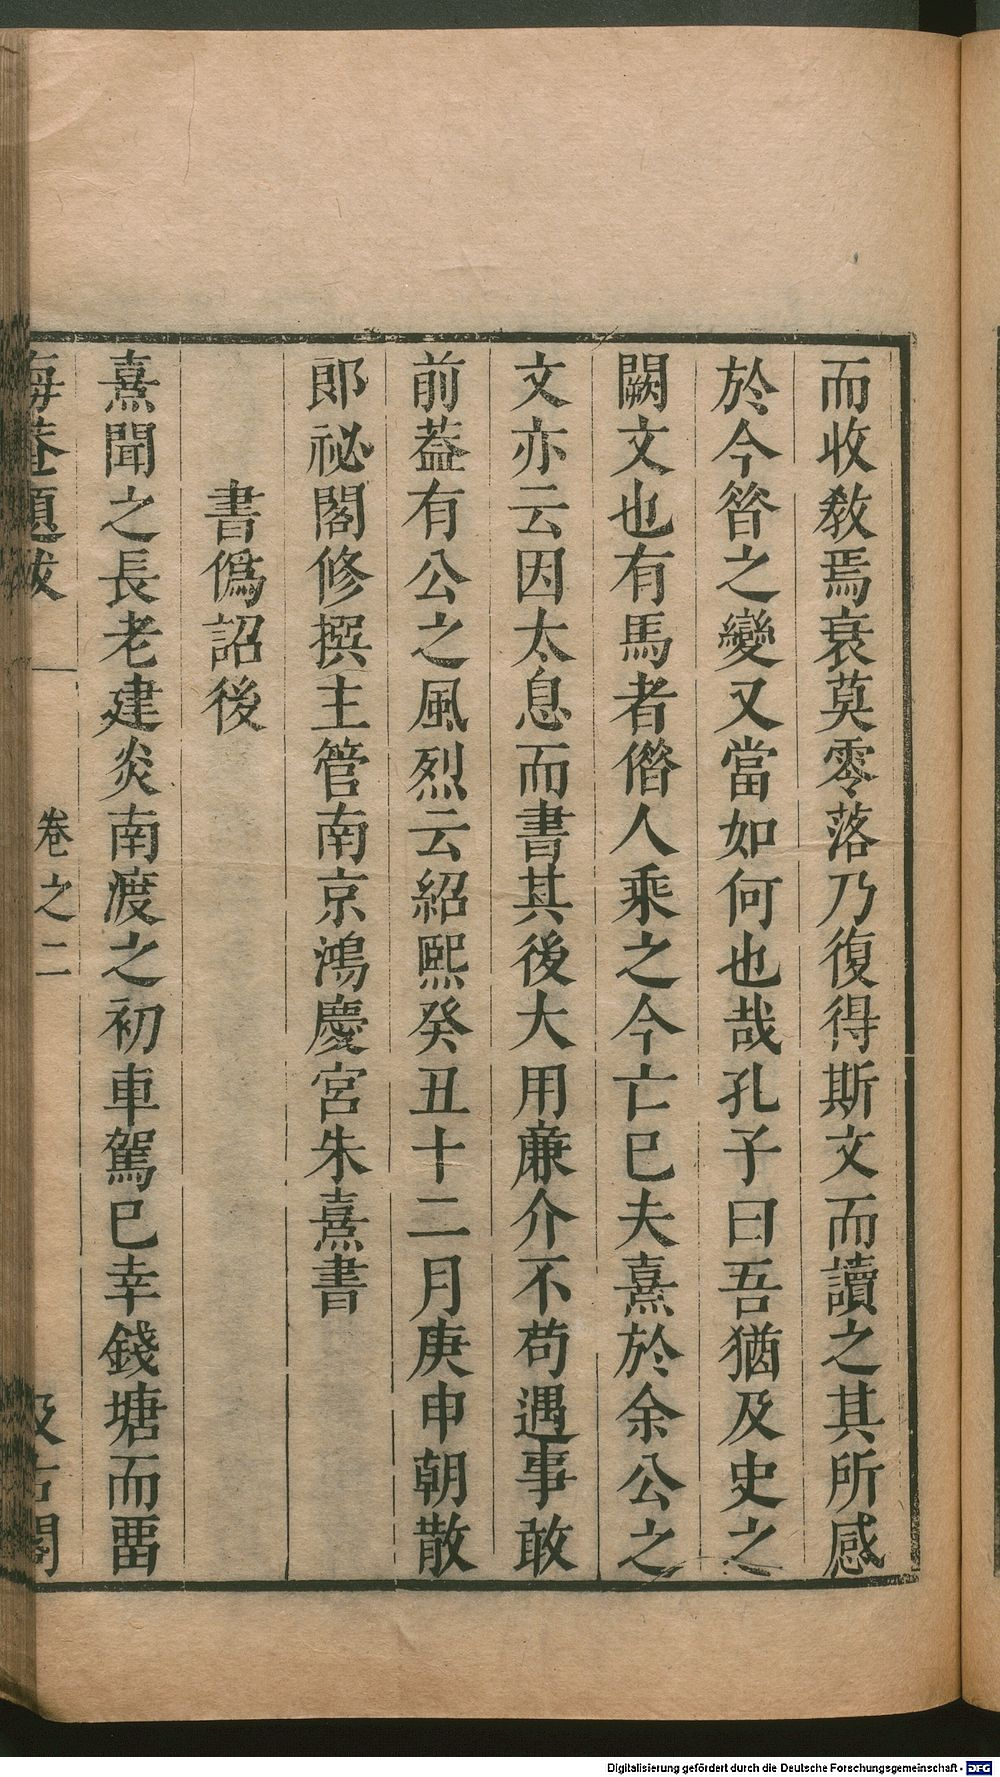 而收敎焉衰莫零落乃復得斯文而讀之其所感
於今昝之變又當如何也哉孔子曰吾猶及史之
闕文也有馬者借人乘之今亡已夫熹於余公之
文亦云因太息而書其後大用亷介不苟遇事敢
前葢有公之風烈云紹熙癸丑十二月庚申朝散
郎祕閣修撰主管南京鴻慶宮朱熹書
書僞詔後
熹聞之長老建炎南渡之初車駕已幸錢塘而畱
海菴題跋 卷之二 汲古閣
Digitalisierung gefördert durch die Deutsche Forschungsgemeinschaft - DFG